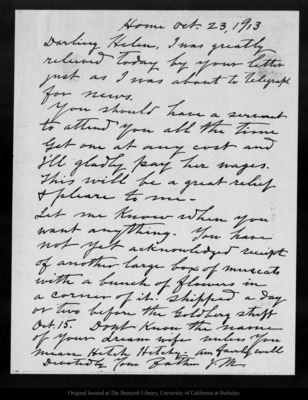 Home Oct. 23, 1913
Darling Helen. I was greatly
relieved today by your letter
just as I was about to telegraph
for news.
You should have a servant
to attend you all the time
Get one at any cost and
I'll gladly pay her wages.
This will be a great relief
& pleasure to me -
Let me know when you
want anything. You have
not yet acknowledged receipt
of another large box of muscats
with a bunch of flowers in
a corner of it. shipped a day
or two before the Goldberg shift
Oct. 15. Dont know the name
of your dream wife unless you
mean Hetch Hetchy. Am fairly well
Devotedly Your Father J.M.
Original located at The Bancroft Library, University of California at Berkeley